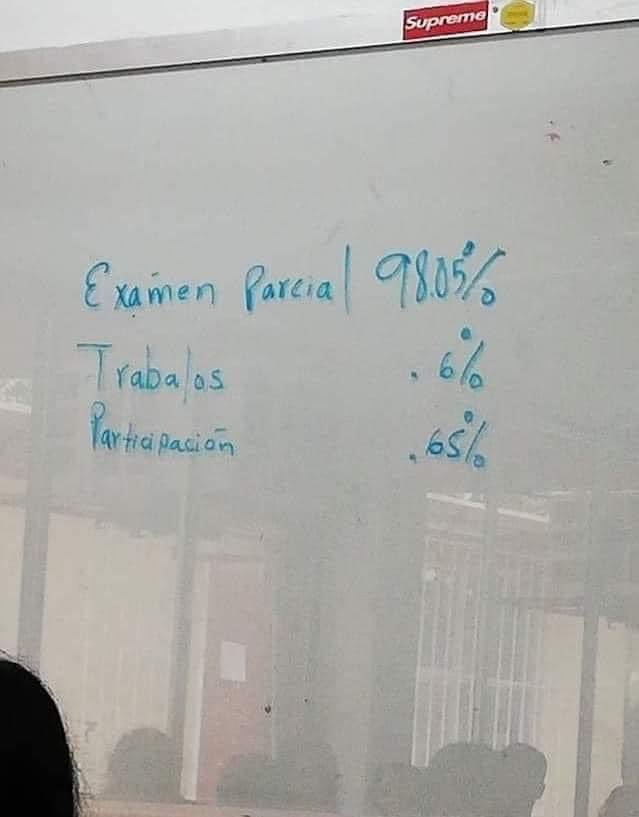 Supreme
Examen Parcial 98.05%
Trabalos .6%
Participación .65%